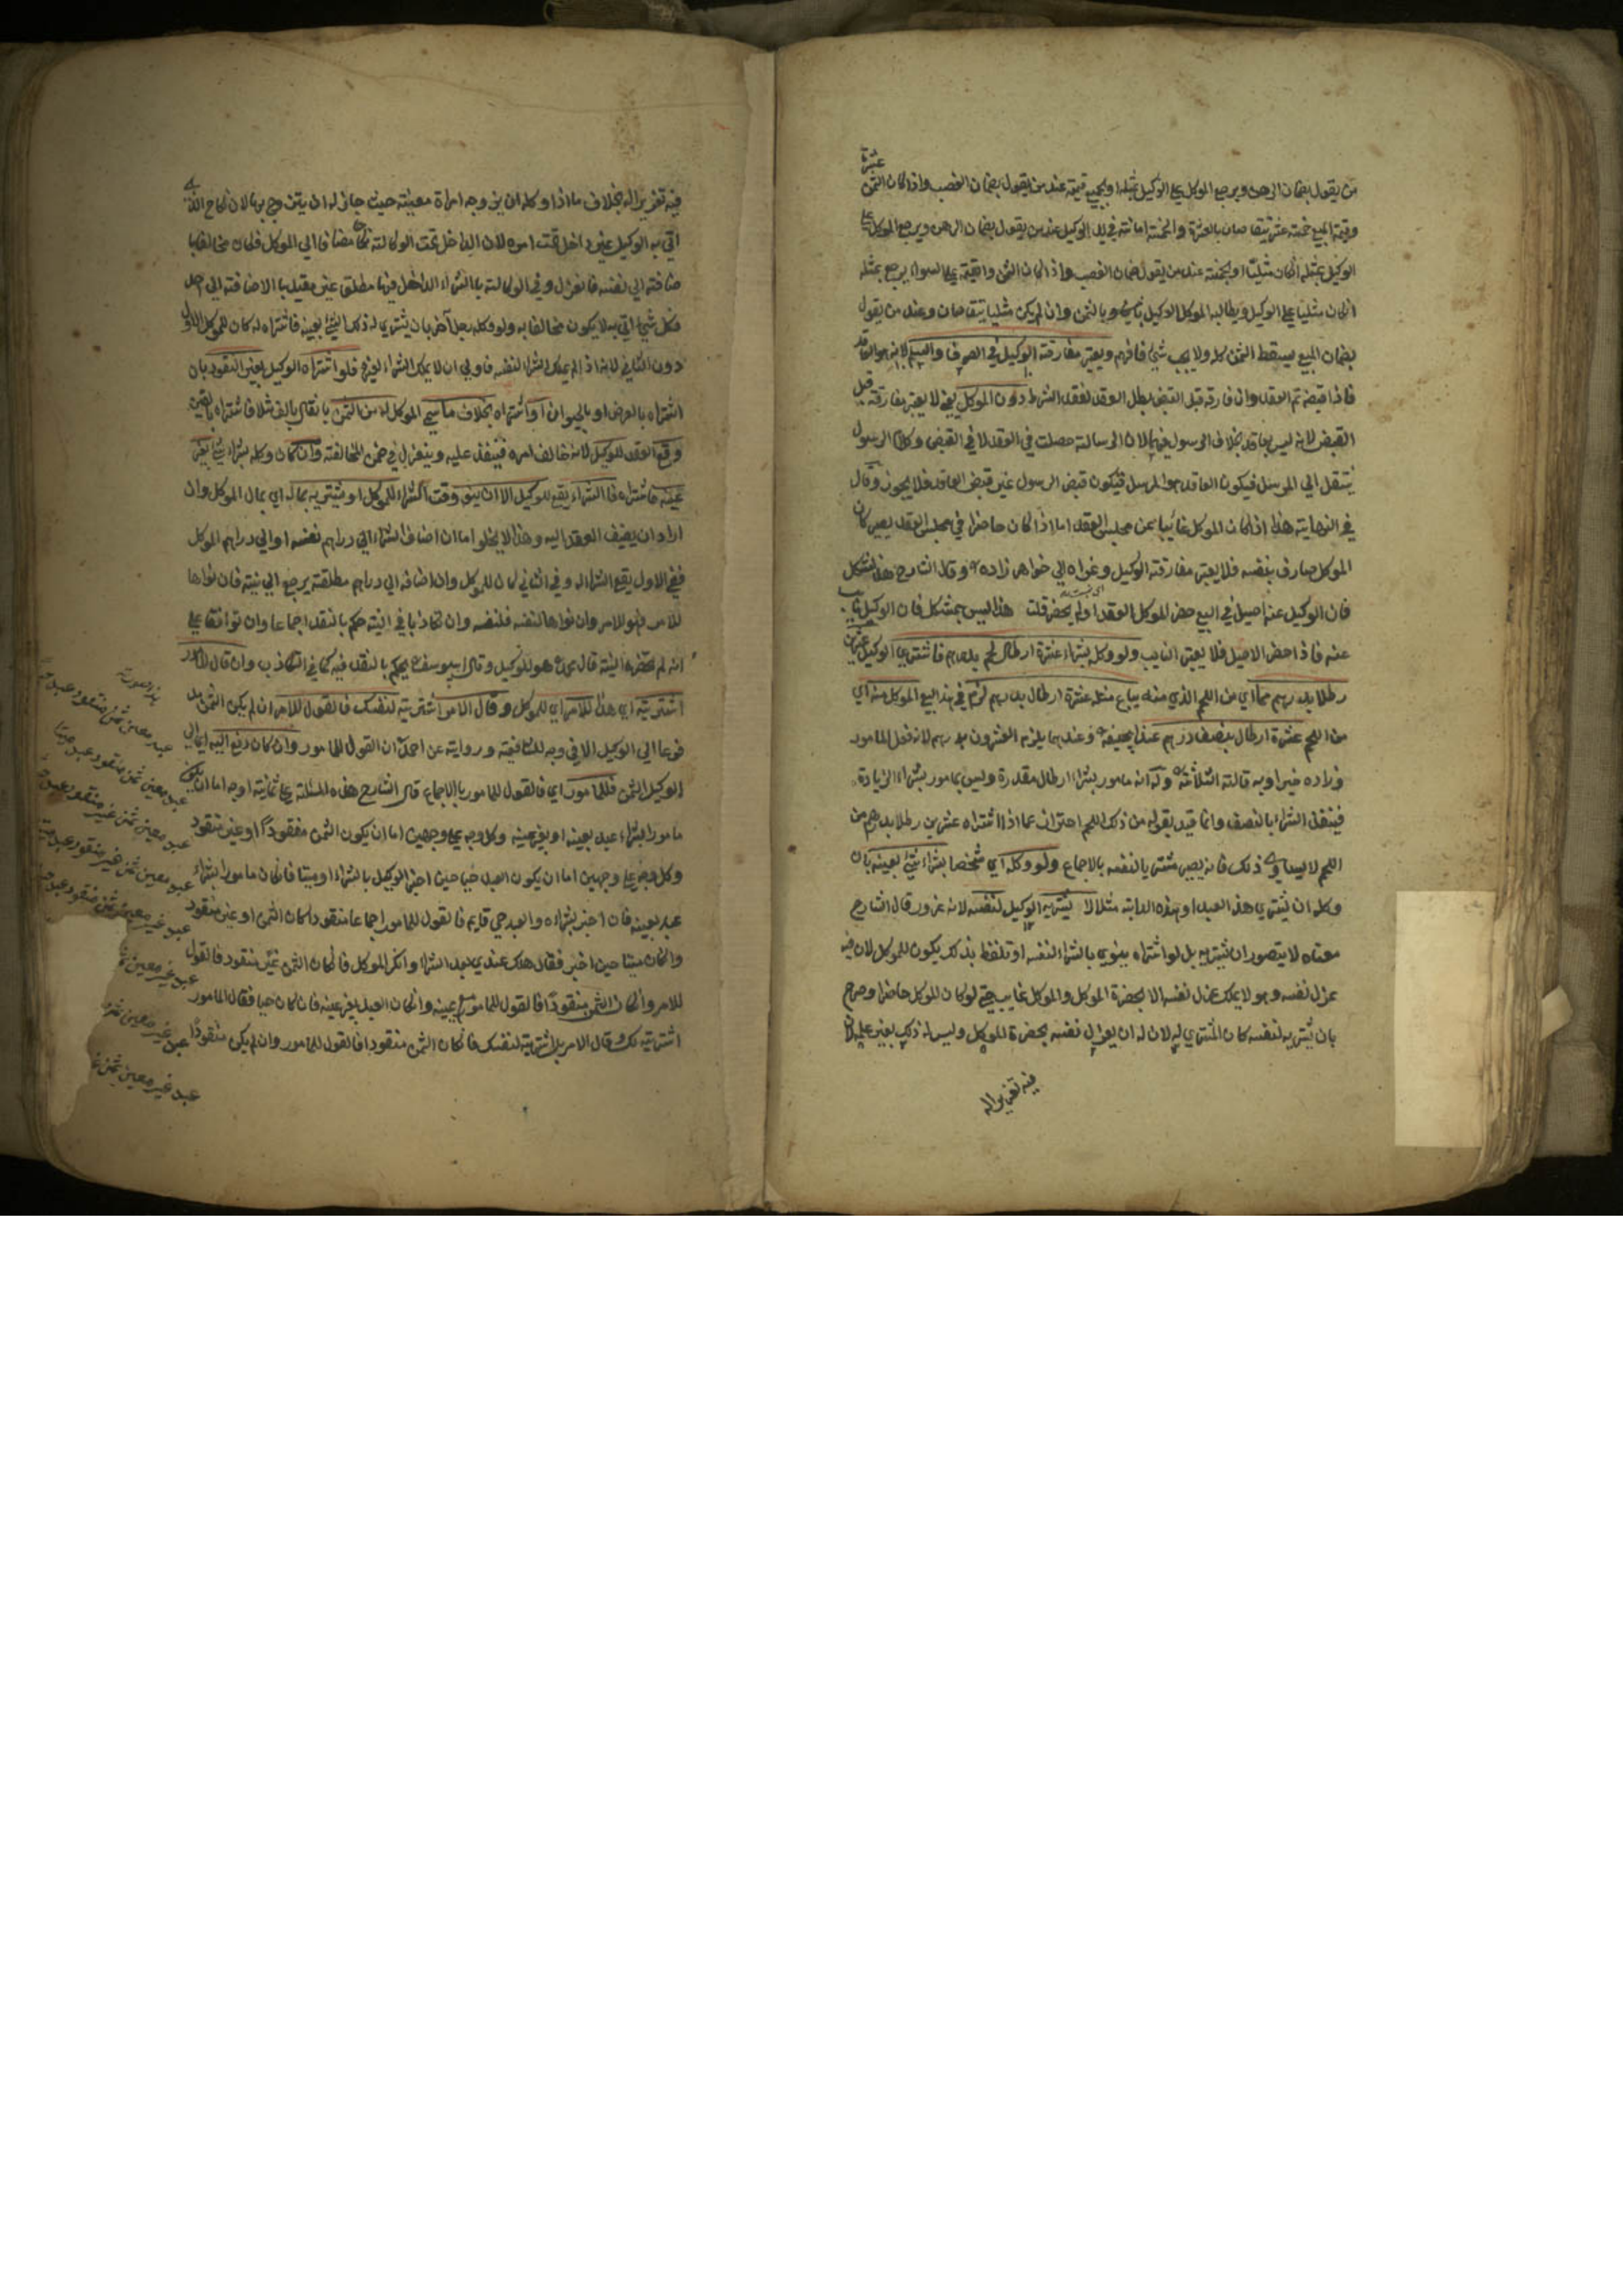 من يقول بضمان الرهن ويرجع الموكل على الوكيل بمثله او بجميع قيمته عند من يقول بضمان الغصب واذا كان الثمن عشرة
وقيمة المبيع خمسة عشر يتقاصان بالعشرة والخمسة امانة في يد الوكيل عند من يقول بضمان الرهن ويرجع الموكل على
الوكيل بمثله انكان مثليا او بخمسة عند من يقول بضمان الغصب واذا كان الثمن والقيمة على السواء يرجع بمثله
انكان مثليا على الوكيل ويطالبه الوكيل بالثمن وان لم يكن مثليا يتقاصان وعند من يقول
بضمان المبيع يسقط الثمن كله ولا يجب شيء فافهم ويعتبر مفارقة الوكيل في الصرف والسلم لانه هو العاقد
فاذا قبضه تم العقد وان فارقه قبل القبض بطل العقد لفقد الشرط دون الموكل يعني لا يعتبر مفارقته قبل
القبض لانه ليس بعاقد بخلاف الرسول فيهما لان الرسالة حصلت في العقد لا في القبض وكلام الرسول
ينتقل الى المرسل فيكون العاقد هو المرسل فيكون قبض الرسول غير قبض العاقد فلا يجوز وقال
في النهاية هذا اذا كان الموكل غائبا عن مجلس العقد اما اذا كان حاضرا في مجلس العقد يصير كان
الموكل صارف بنفسه فلا يعتبر مفارقة الوكيل وعزاه الى خواهر زاده وقال الشارح هذا مشكل
فان الوكيل عنه اصيل في البيع حضر الموكل العقد او لم يحضر قلت هذا ليس بمشكل فان الوكيل نايب
عنه فاذا حضر الاصيل فلا يعتبر النايب ولو وكله بشراء عشرة ارطال لحم بدرهم فاشترى الوكيل عشرين
رطلا بدرهم مما اي من اللحم الذي منه يباع مثله عشرة ارطال بدرهم لزم في هذا البيع الموكل منه اي
من اللحم عشرة ارطال بنصف درهم عند ابي حنيفة وعندهما يلزمه العشرون بدرهم لانه فعل المامور
وزاده خيرا وبه قالت الثلاثة وله انه مامور بشراء ارطال مقدرة وليس بمامور بشراء الزيادة
فينفذ الشراء بالنصف وانما قيد بقوله من ذلك اللحم احتراز عما اذا اشتراه عشرين رطلا بدرهم من
اللحم لا يساوي ذلك فانه يصير مشتريا لنفسه بالاجماع ولو وكله اي شخصا بشراء شيء بعينه بان
وكله ان يشتري هذا العبد او هذه الدابة مثلا لا يشتريه الوكيل لنفسه لانه غرور قال الشارح
معناه لا يتصور ان يشتريه بل لو اشتراه ينوي بالشراء لنفسه او تلفظ بذلك يكون للموكل لان فيه
عزل نفسه وهو لا يملك عزل نفسه الا بحضرة الموكل والموكل غايب حتى لو كان الموكل حاضرا وصرح
بان يشتريه لنفسه كان المشتري له لان له ان يعزل نفسه بحضرة الموكل وليس له ذلك بغير علمه لان
فيه تغريرا له
فيه تغريرا له بخلاف ما اذا وكله ان يزوجه امراة معينة حيث جاز له ان يتزوج بها لان النكاح الذي
اتى به الوكيل غير داخل تحت امره لان الداخل تحت الوكالة نكاح مضاف الى الموكل فكان مخالفا
باضافته الى نفسه فانعزل وفي الوكالة بالشراء الداخل فيها مطلق غير مقيد بالاضافة الى احد
فكل شيء اتى به لا يكون مخالفا به ولو وكله رجل آخر بان يشتري له ذلك الشيء بعينه فاشتراه له كان للموكل الاول
دون الثاني لانه اذا لم يملك الشراء لنفسه فاولى ان لا يملك الشراء لغيره فلو اشتراه الوكيل بغير النقود بان
اشتراه بالعرض او بالحيوان او اشتراه بخلاف ما سمى الموكل له من الثمن بان قال بالف مثلا فاشتراه بالفين
وقع العقد للوكيل لانه خالف امره فينفذ عليه وينعزل في ضمن المخالفة وان كان وكله بشراء شيء بغير
عينه فاشتراه فالشراء يقع للوكيل الا ان ينوي وقت الشراء للموكل او يشتريه بماله اي بمال الموكل وان
اراد ان يضيف العقد اليه وهذا لا يخلو اما ان اضاف الشراء الى دراهم نفسه او الى دراهم الموكل
ففي الاول يقع الشراء له وفي الثاني كان للموكل وان اضافه الى دراهم مطلقة يرجع الى نيته فان نواها
للامر فهو للامر وان نواها لنفسه فلنفسه وان تكاذبا في النية حكم بالنقد اجماعا وان توافقا على
انه لم تحضره النية قال محمد هو للوكيل وقال ابو يوسف يحكم بالنقد فيه كما في التكاذب وان قال المامور
اشتريته اي هذا للامر اي للموكل وقال الامر اشتريته لنفسك فالقول للامر ان لم يكن الثمن مد
فوعا الى الوكيل الا في وجه للشافعية ورواية عن احمد ان القول للمامور وان كان دفع اليه اي الى
الوكيل الثمن فللمامور اي فالقول للمامور بالاجماع قال الشارح هذه المسئلة على ثمانية اوجه اما ان يكون
مامورا بشراء عبد بعينه او بغير عينه وكل وجه على وجهين اما ان يكون الثمن منقودا او غير منقود
وكل وجه على وجهين اما ان يكون العبد حيا حين اخبر الوكيل بالشراء او ميتا فان كان مامورا بشراء
عبد بعينه فان اخبر بشراءه والعبد حي قايم فالقول للمامور اجماعا منقودا كان الثمن او غير منقود
وانكان ميتا حين اخبر فقال هلك عندي بعد الشراء وانكر الموكل فان كان الثمن غير منقود فالقول
للامر وانكان الثمن منقودا فالقول للمامور مع يمينه وانكان العبد بغير عينه فان كان حيا فقال المامور
اشتريته لك وقال الامر بل اشتريته لنفسك فان كان الثمن منقودا فالقول للمامور وان لم يكن منقودا
هذه الصورة
عبد معين ثمن منقود عبد
عبد معين ثمن منقود عبد ميتا
عبد معين ثمن غير منقود عبد
عبد معين ثمن غير منقود عبد ميت
عبد غير معين ثمن منقود عبد
عبد غير معين
عبد غير معين ثمن
عبد غير معين ثمن